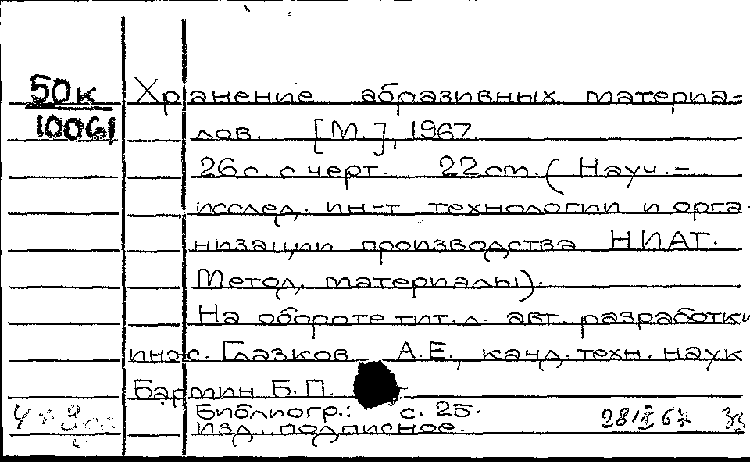 50к Хранение абразивных материа-
10061 лов. [М.], 1967.
26 с. с черт. 22 см. (Науч.-
исслед. ин-т технологии и орга-
низации производства НИАТ.
Метод. материалы).
На обороте тит. л. авт. разработки
инж. Глазков А.Е., канд. техн. наук
Бармин Б.П.
Библиогр.: с. 25.
Изд. подписное.